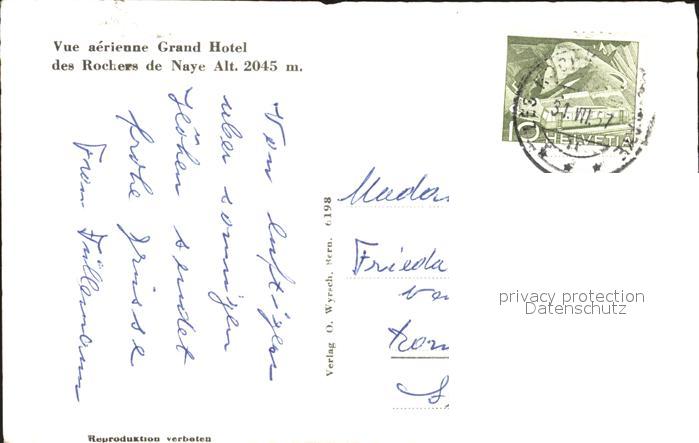 Vue aérienne Grand Hotel
des Rochers de Naye Alt. 2045 m.
Von luftigen
über sonnigen
Höhen sendet
frohe Grüsse
Verlag O. Wyrsch, Bern. 6198
Reproduktion verboten
10 HELVETIA
31.VII.57
Madam
Frieda
privacy protection
Datenschutz